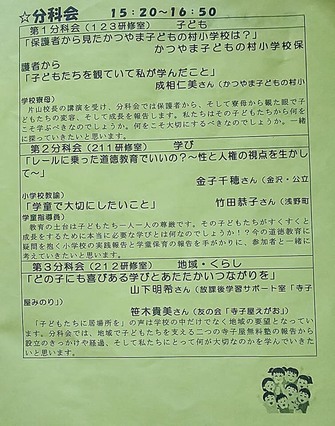 ☆分科会　１５：２０～１６：５０
第１分科会（１２３研修室）　子ども
「保護者から見たかつやま子どもの村小学校は？」
かつやま子どもの村小学校保
護者から
「子どもたちを観ていて私が学んだこと」
成相仁美さん（かつやま子どもの村小
学校寮母）
片山校長の講演を受け、分科会では保護者から、そして寮母から観た眼で子
どもたちの変容、そして成長を報告します。私たちはその子どもたちから何を
どこそ学ぶべきなのでしょうか。何をこそ大切にするべきなのでしょうか。一緒
に探っていきたいと思います。
第２分科会（２１１研修室）　学び
「レールに乗った道徳教育でいいの？～性と人権の視点を生かし
て～」
金子千穂さん（金沢・公立
小学校教諭）
「学童で大切にしたいこと」　竹田恭子さん（浅野町
学童指導員）
教育の土台は子どもたち一人一人の尊厳です。その子どもたちがすくすくと
成長をするために本当に必要な学びとは何なのでしょうか！？今の道徳教育に
疑問を抱く小学校の実践報告と学童保育の報告を手がかりに、参加者と一緒に
考えていきたいと思います。
第３分科会（２１２研修室）　地域・くらし
「どの子にも喜びある学びとあたたかいつながりを」
山下明希さん（放課後学習サポート室「寺子
屋みのり」）
笹木貴美さん（友の会「寺子屋えがお」）
「子どもたちに居場所を」の声は学校の中だけでなく地域の要望となっていま
す。分科会では、地域で子どもたちを支える二つの寺子屋無料塾の報告から
設立のきっかけや経過、そして私たちにとって何が大切なのかを学んでいきた
いと思います。